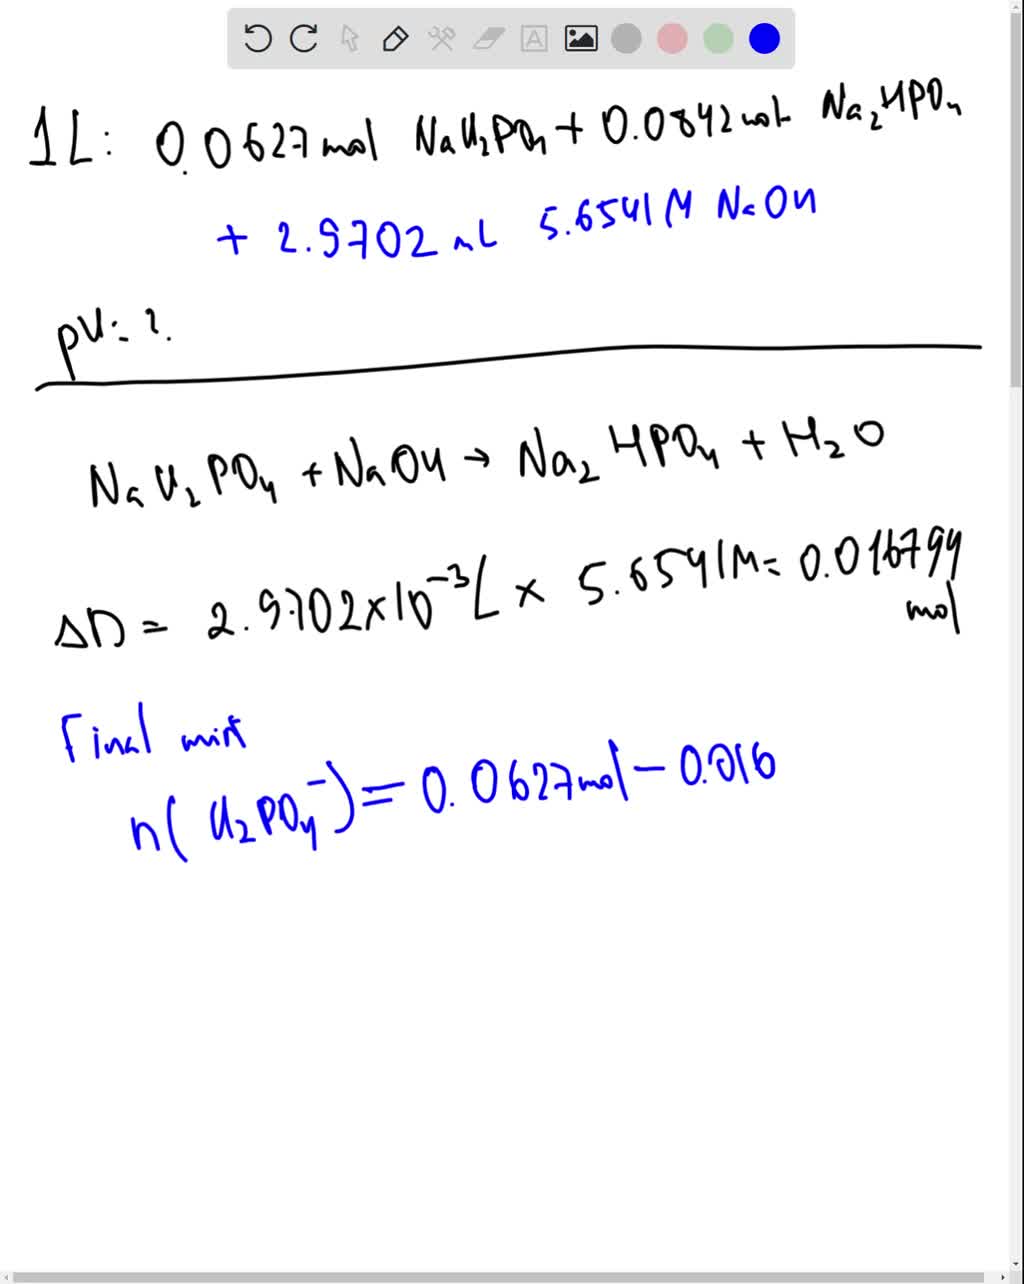 1L: 0.0627 mol NaH₂PO₄ + 0.0842 mol Na₂HPO₄
+ 2.9702 mL 5.6541 M NaOH
pH = ?
NaH₂PO₄ + NaOH → Na₂HPO₄ + H₂O
Δn = 2.9702×10⁻³L × 5.6541M = 0.016794
mol
Final mixt
n(H₂PO₄⁻) = 0.0627 mol − 0.016